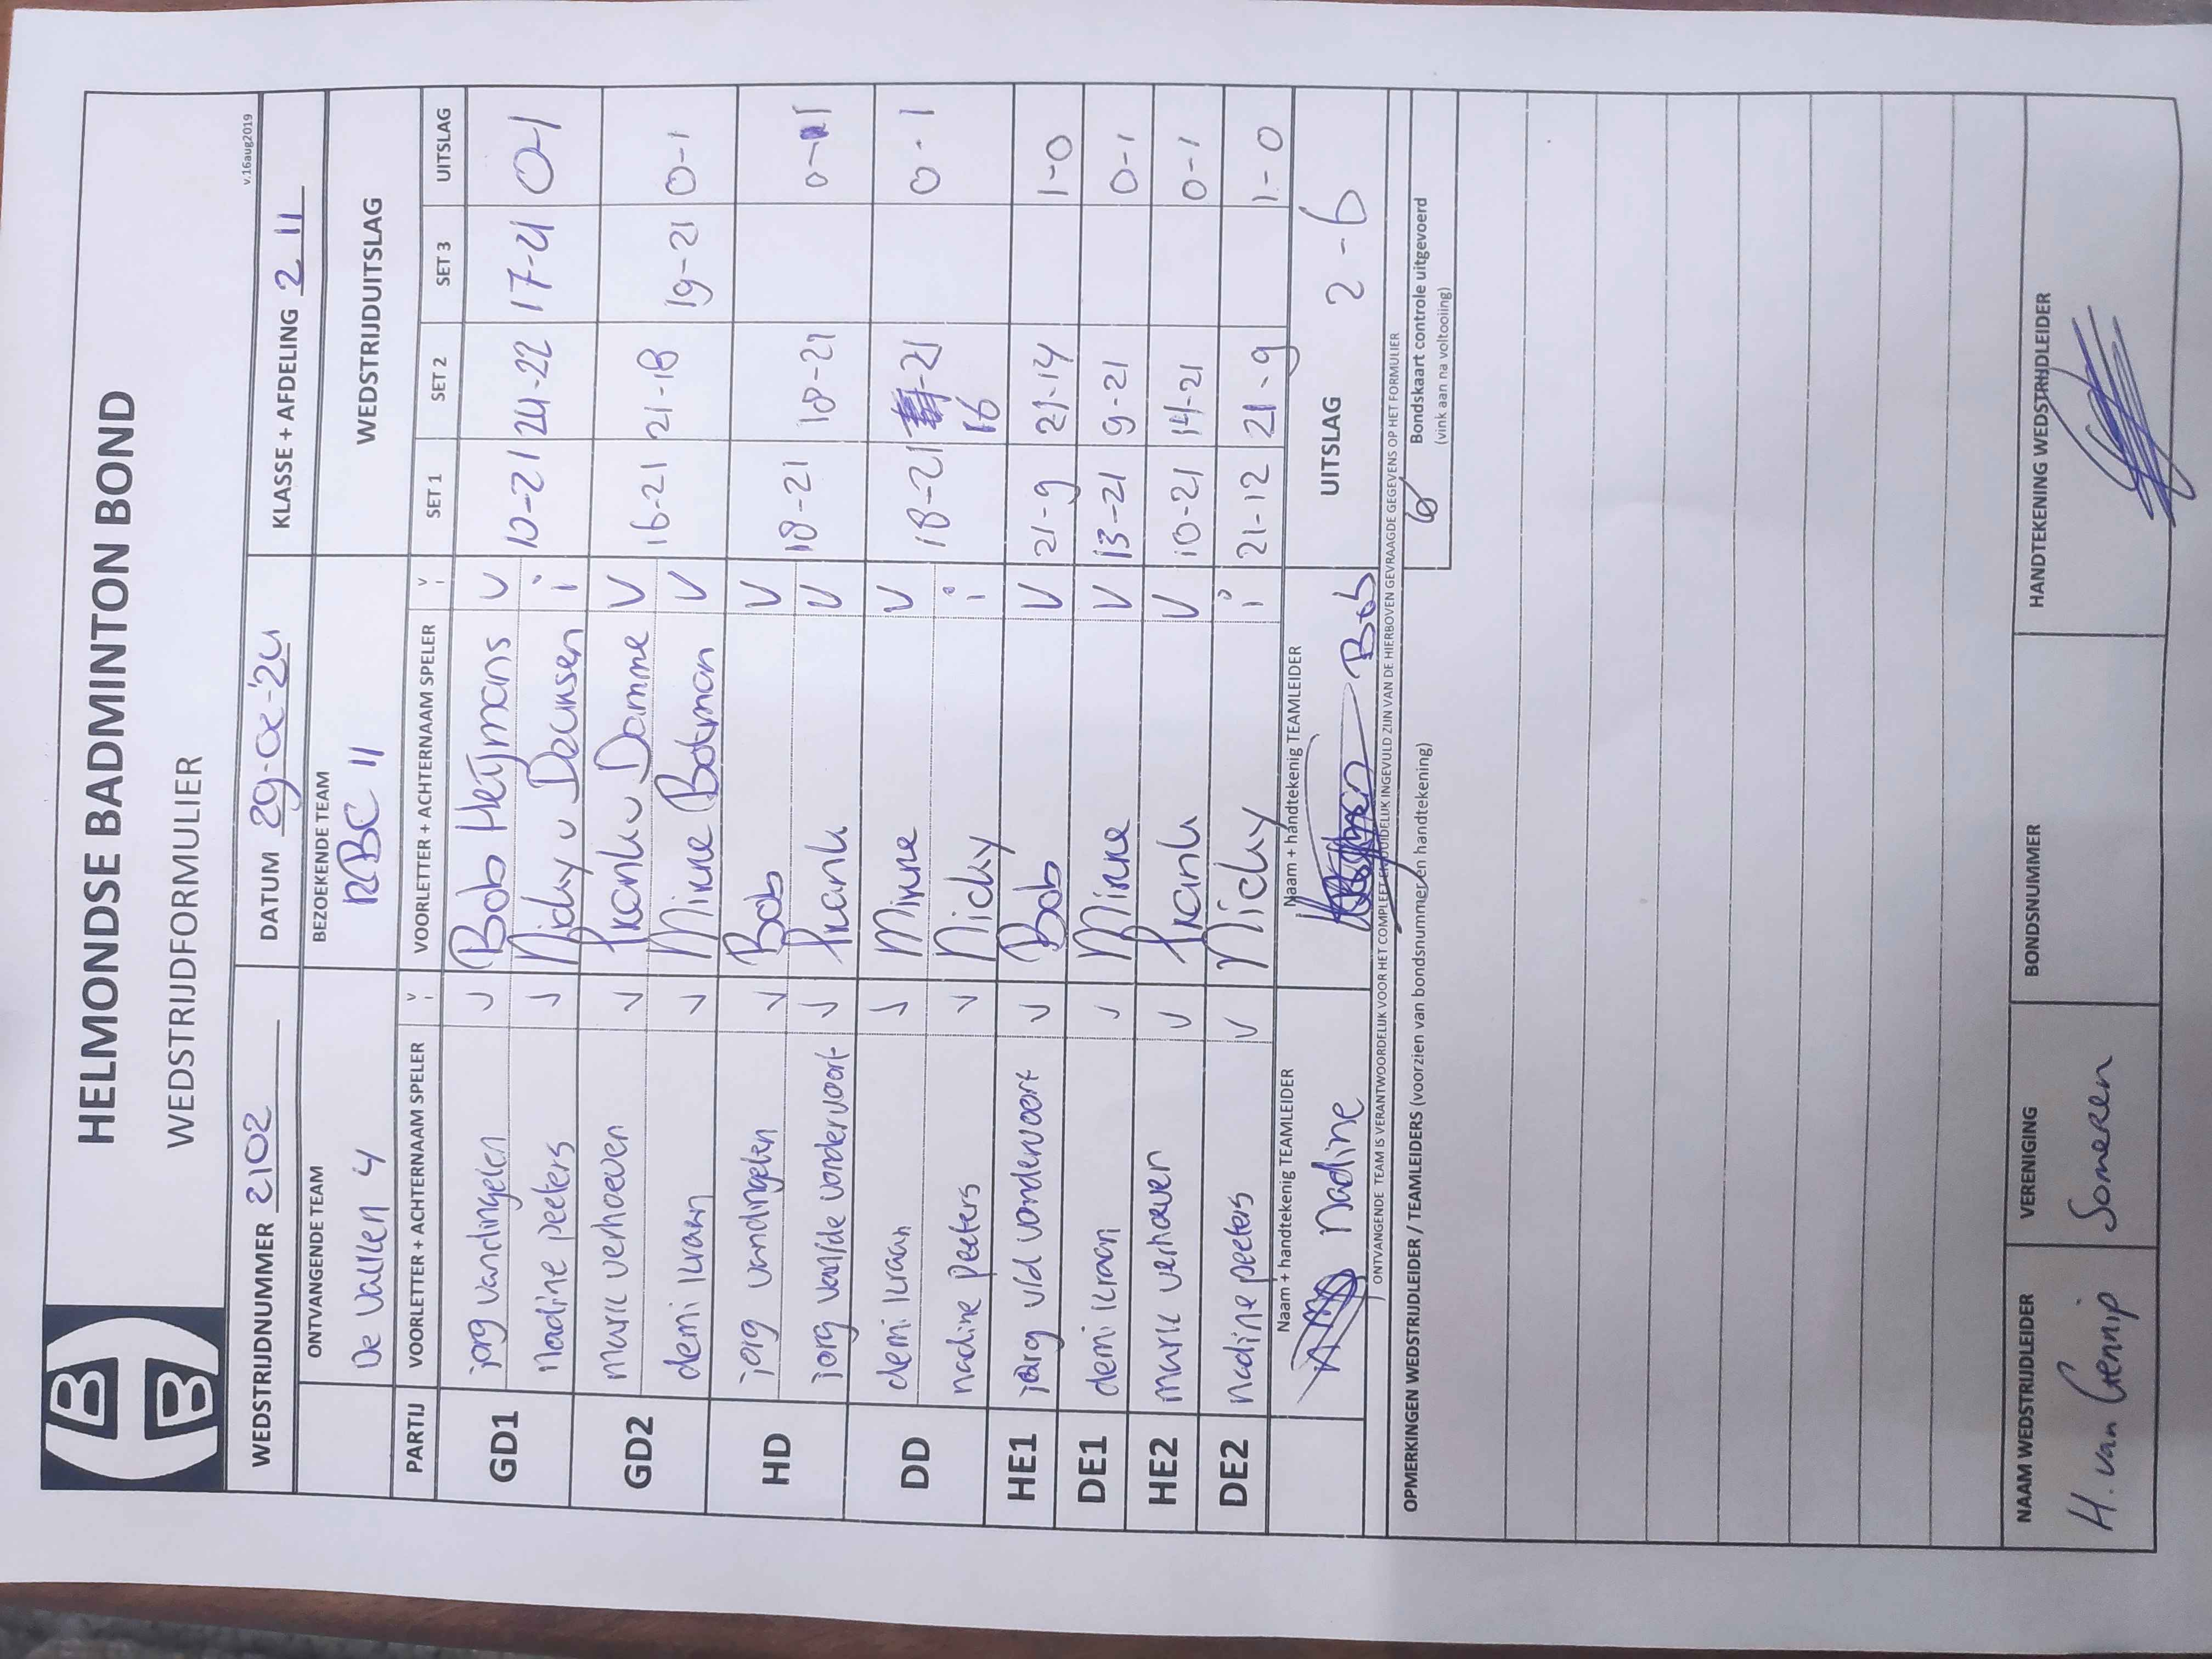 HELMONDSE BADMINTON BOND
WEDSTRIJDFORMULIER
v.16aug2019
WEDSTRIJDNUMMER 2102 DATUM 29-02-'24 KLASSE + AFDELING 2 11
ONTVANGENDE TEAM BEZOEKENDE TEAM WEDSTRIJDUITSLAG
De Vallen 4 RBC 11
PARTIJ VOORLETTER + ACHTERNAAM SPELER V i VOORLETTER + ACHTERNAAM SPELER V i SET 1 SET 2 SET 3 UITSLAG
GD1 jorg vandingelen V Bob Heijmans V
nadine peeters V Nicky v Deursen i 10-21 24-22 17-21 0-1
GD2 mark verhoeven V Frank v Damme V
demi kraan V Minne Botman V 16-21 21-18 19-21 0-1
HD jorg vandingelen V Bob V
jorg van/de vondervoort V Frank V 18-21 18-21 0-1
DD demi kraan V Minne V
nadine peeters V Nicky i 18-21 16-21 0-1
HE1 jorg v/d vondervoort V Bob V 21-9 21-14 1-0
DE1 demi kraan V Minne V 13-21 9-21 0-1
HE2 mark verhoeven V Frank V 10-21 14-21 0-1
DE2 nadine peeters V Nicky i 21-12 21-9 1-0
Naam + handtekenig TEAMLEIDER Naam + handtekenig TEAMLEIDER UITSLAG 2-6
nadine Bob
ONTVANGENDE TEAM IS VERANTWOORDELIJK VOOR HET COMPLEET EN DUIDELIJK INGEVULD ZIJN VAN DE HIERBOVEN GEVRAAGDE GEGEVENS OP HET FORMULIER
OPMERKINGEN WEDSTRIJDLEIDER / TEAMLEIDERS (voorzien van bondsnummer en handtekening)
Bondskaart controle uitgevoerd
(vink aan na voltooiing)
NAAM WEDSTRIJDLEIDER VERENIGING BONDSNUMMER HANDTEKENING WEDSTRIJDLEIDER
H. van Gennip Someren